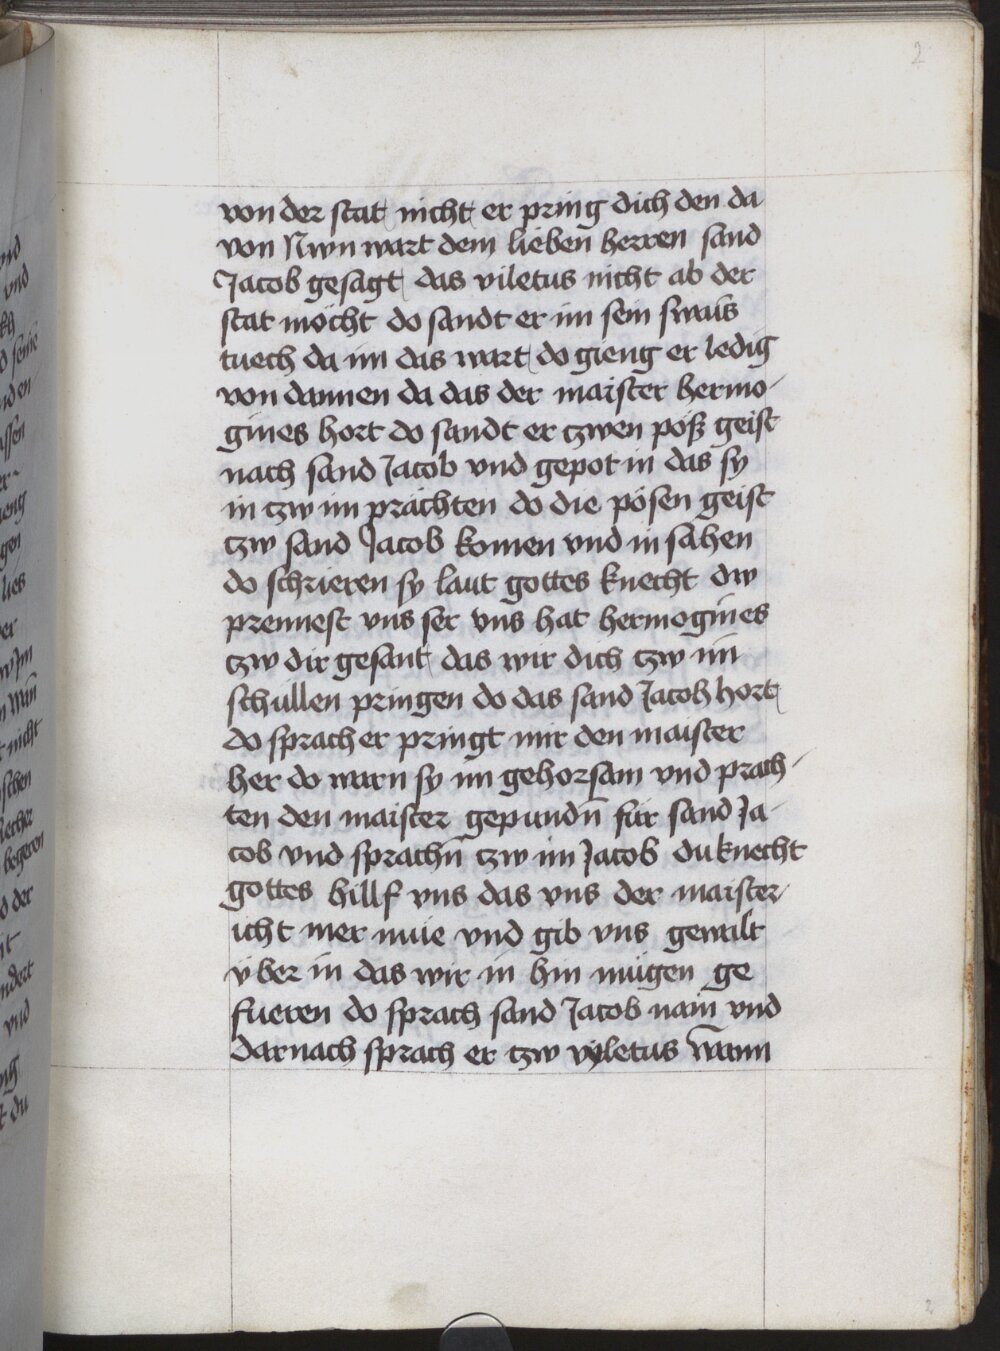 2
von der stat nicht er pring dich den da
von Nwn wart dem lieben herren sand
Jacob gesagt das viletus nicht ab der
stat möcht do sandt er im sein swais
tuech da im das wart do gieng er ledig
von dannen da das der maister hermo-
gines hort do sandt er tzwen pöß geist
nach sand Jacob vnd gepot in das sy
in tzw im prächten do die pösen geist
tzw sand Jacob komen vnd in sahen
do schrieren sy laut gottes knecht dw
prennest vns ser vns hat hermogines
tzw dir gesant das wir dich tzw im
schüllen pringen do das sand Jacob hort
do sprach er pringt mir den maister
her do warn sy im gehorsam vnd prach-
ten den maister gepundn̄ für sand Ja-
cob vnd sprachn̄ tzw im Jacob du knecht
gottes hillf vns das vns der maister
icht mer müe vnd gib vns gewalt
ÿber in das wir in hin mügen ge
füeren do sprach sand Jacob nain vnd
darnach sprach er tzw vyletus wann
2